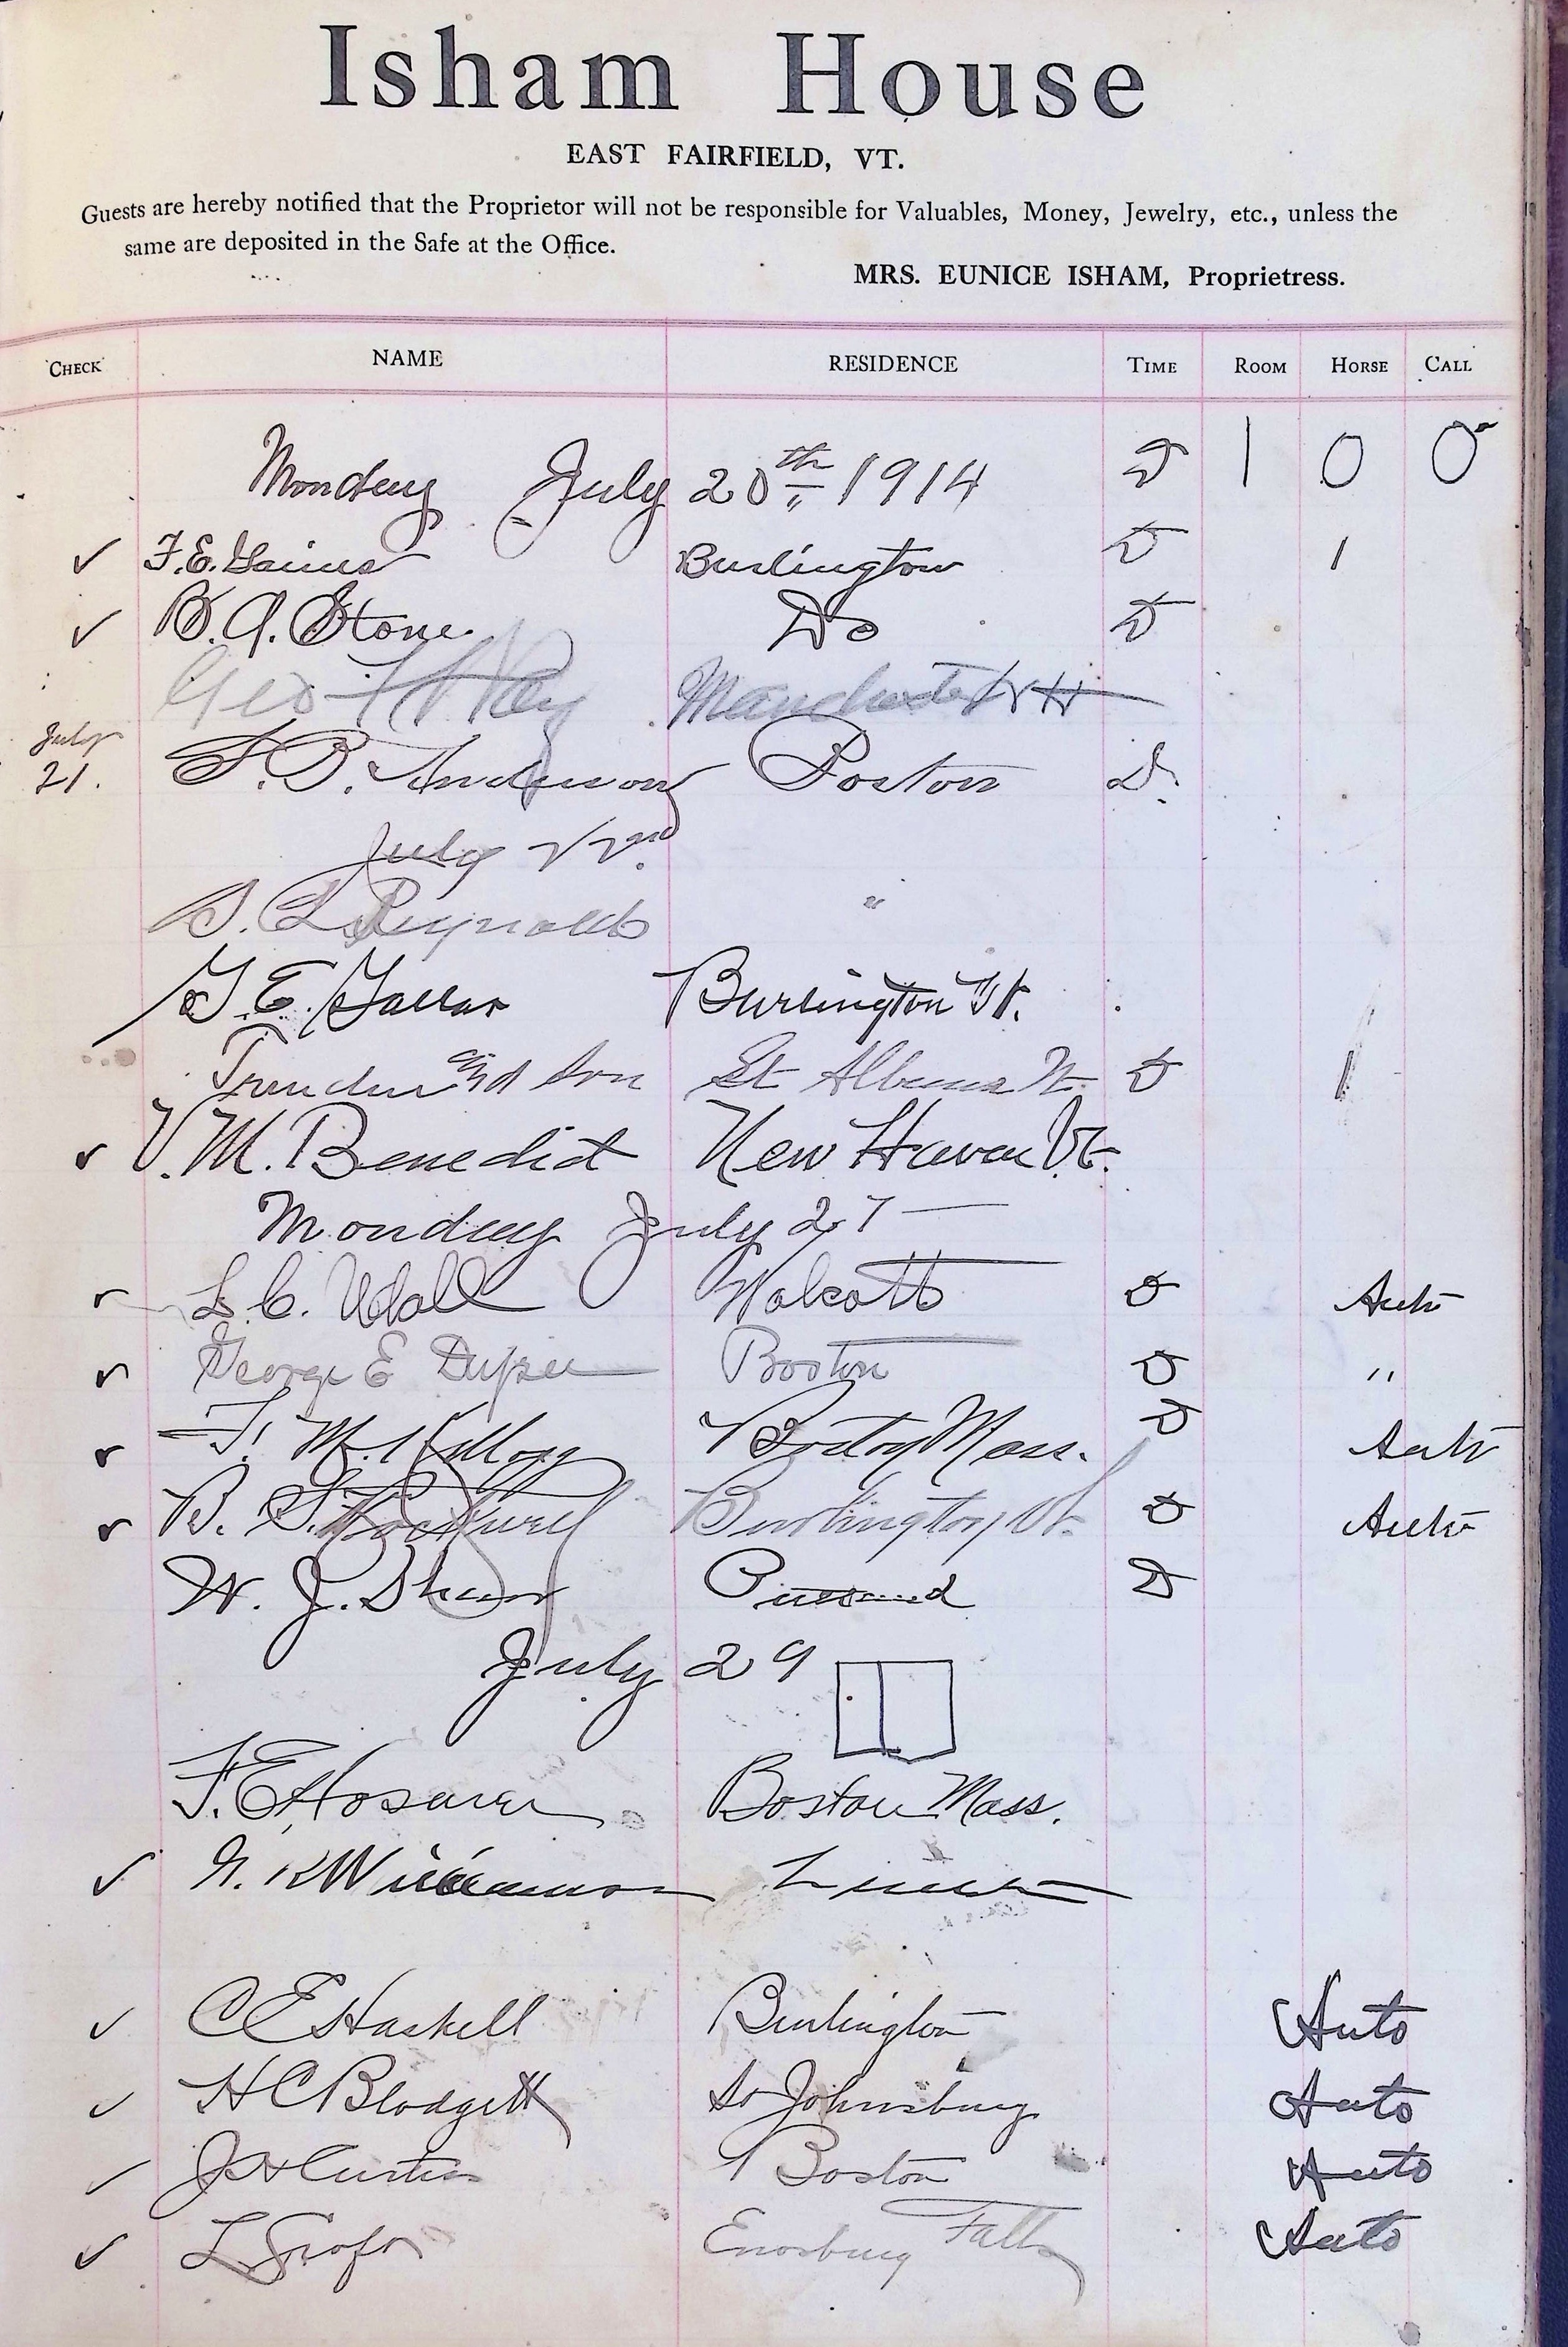 Isham House
EAST FAIRFIELD, VT.
Guests are hereby notified that the Proprietor will not be responsible for Valuables, Money, Jewelry, etc., unless the
same are deposited in the Safe at the Office.
MRS. EUNICE ISHAM, Proprietress.
CHECK NAME RESIDENCE TIME ROOM HORSE CALL
Monday July 20th 1914 D 1 0 0
✓ F.E. Burlington D 1
✓ B.A. Stone Do D
Geo Manchester NH
July 21. F.D. Anderson Boston D.
July 22nd
Reynolds "
E. Burlington Vt.
and Son St Albans Vt. D 1
✓ V.M. Benedict New Haven Vt.
Monday July 27
✓ L.C. Udall Wolcott D Auto
✓ George E Boston D "
✓ F. M. Kellogg Boston Mass. D Auto
✓ B. S. Rockwell Burlington Vt. D Auto
W. J. Shaw D
July 29
F.E. Boston Mass.
✓ Williamson
✓ CE Haskell Burlington Auto
✓ HC Blodgett St Johnsbury Auto
✓ Curtis Boston Auto
✓ L Enosburg Falls Auto